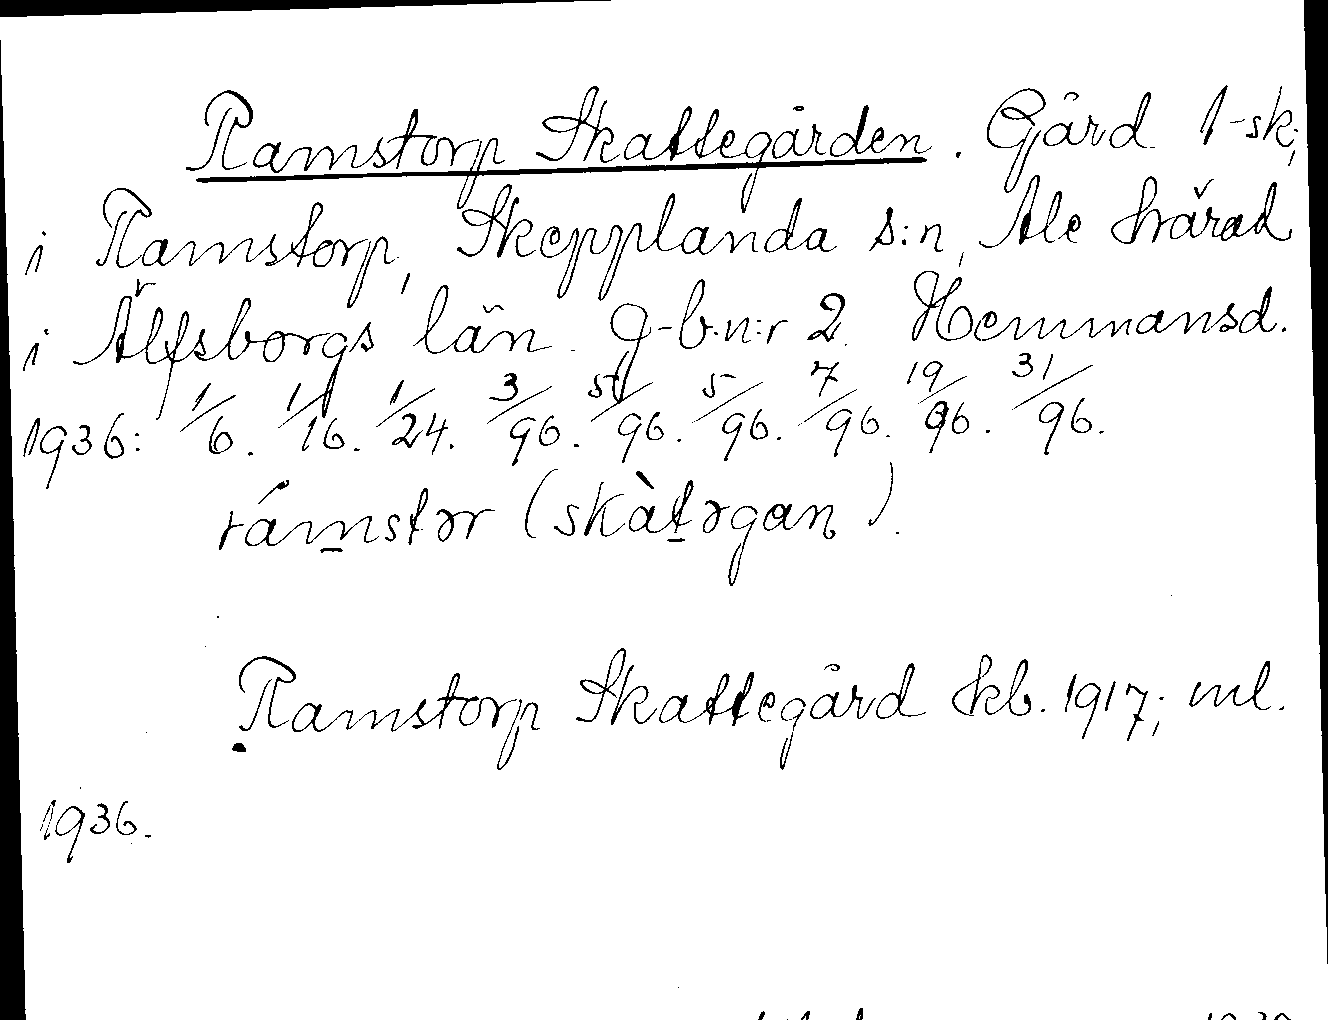 Ramstorp Skattegården. Gård 1-sk;
i Ramstorp, Skepplanda s:n, Ale härad
i Älfsborgs län. J-b.n:r 2. Hemmansd.
1936: 1/6. 1/16. 1/24. 3/96. 5/96. 5/96. 7/96. 19/96. 31/96.
rámstər (skàtəgan).
Ramstorp Skattegård kb. 1917; ml.
1936.